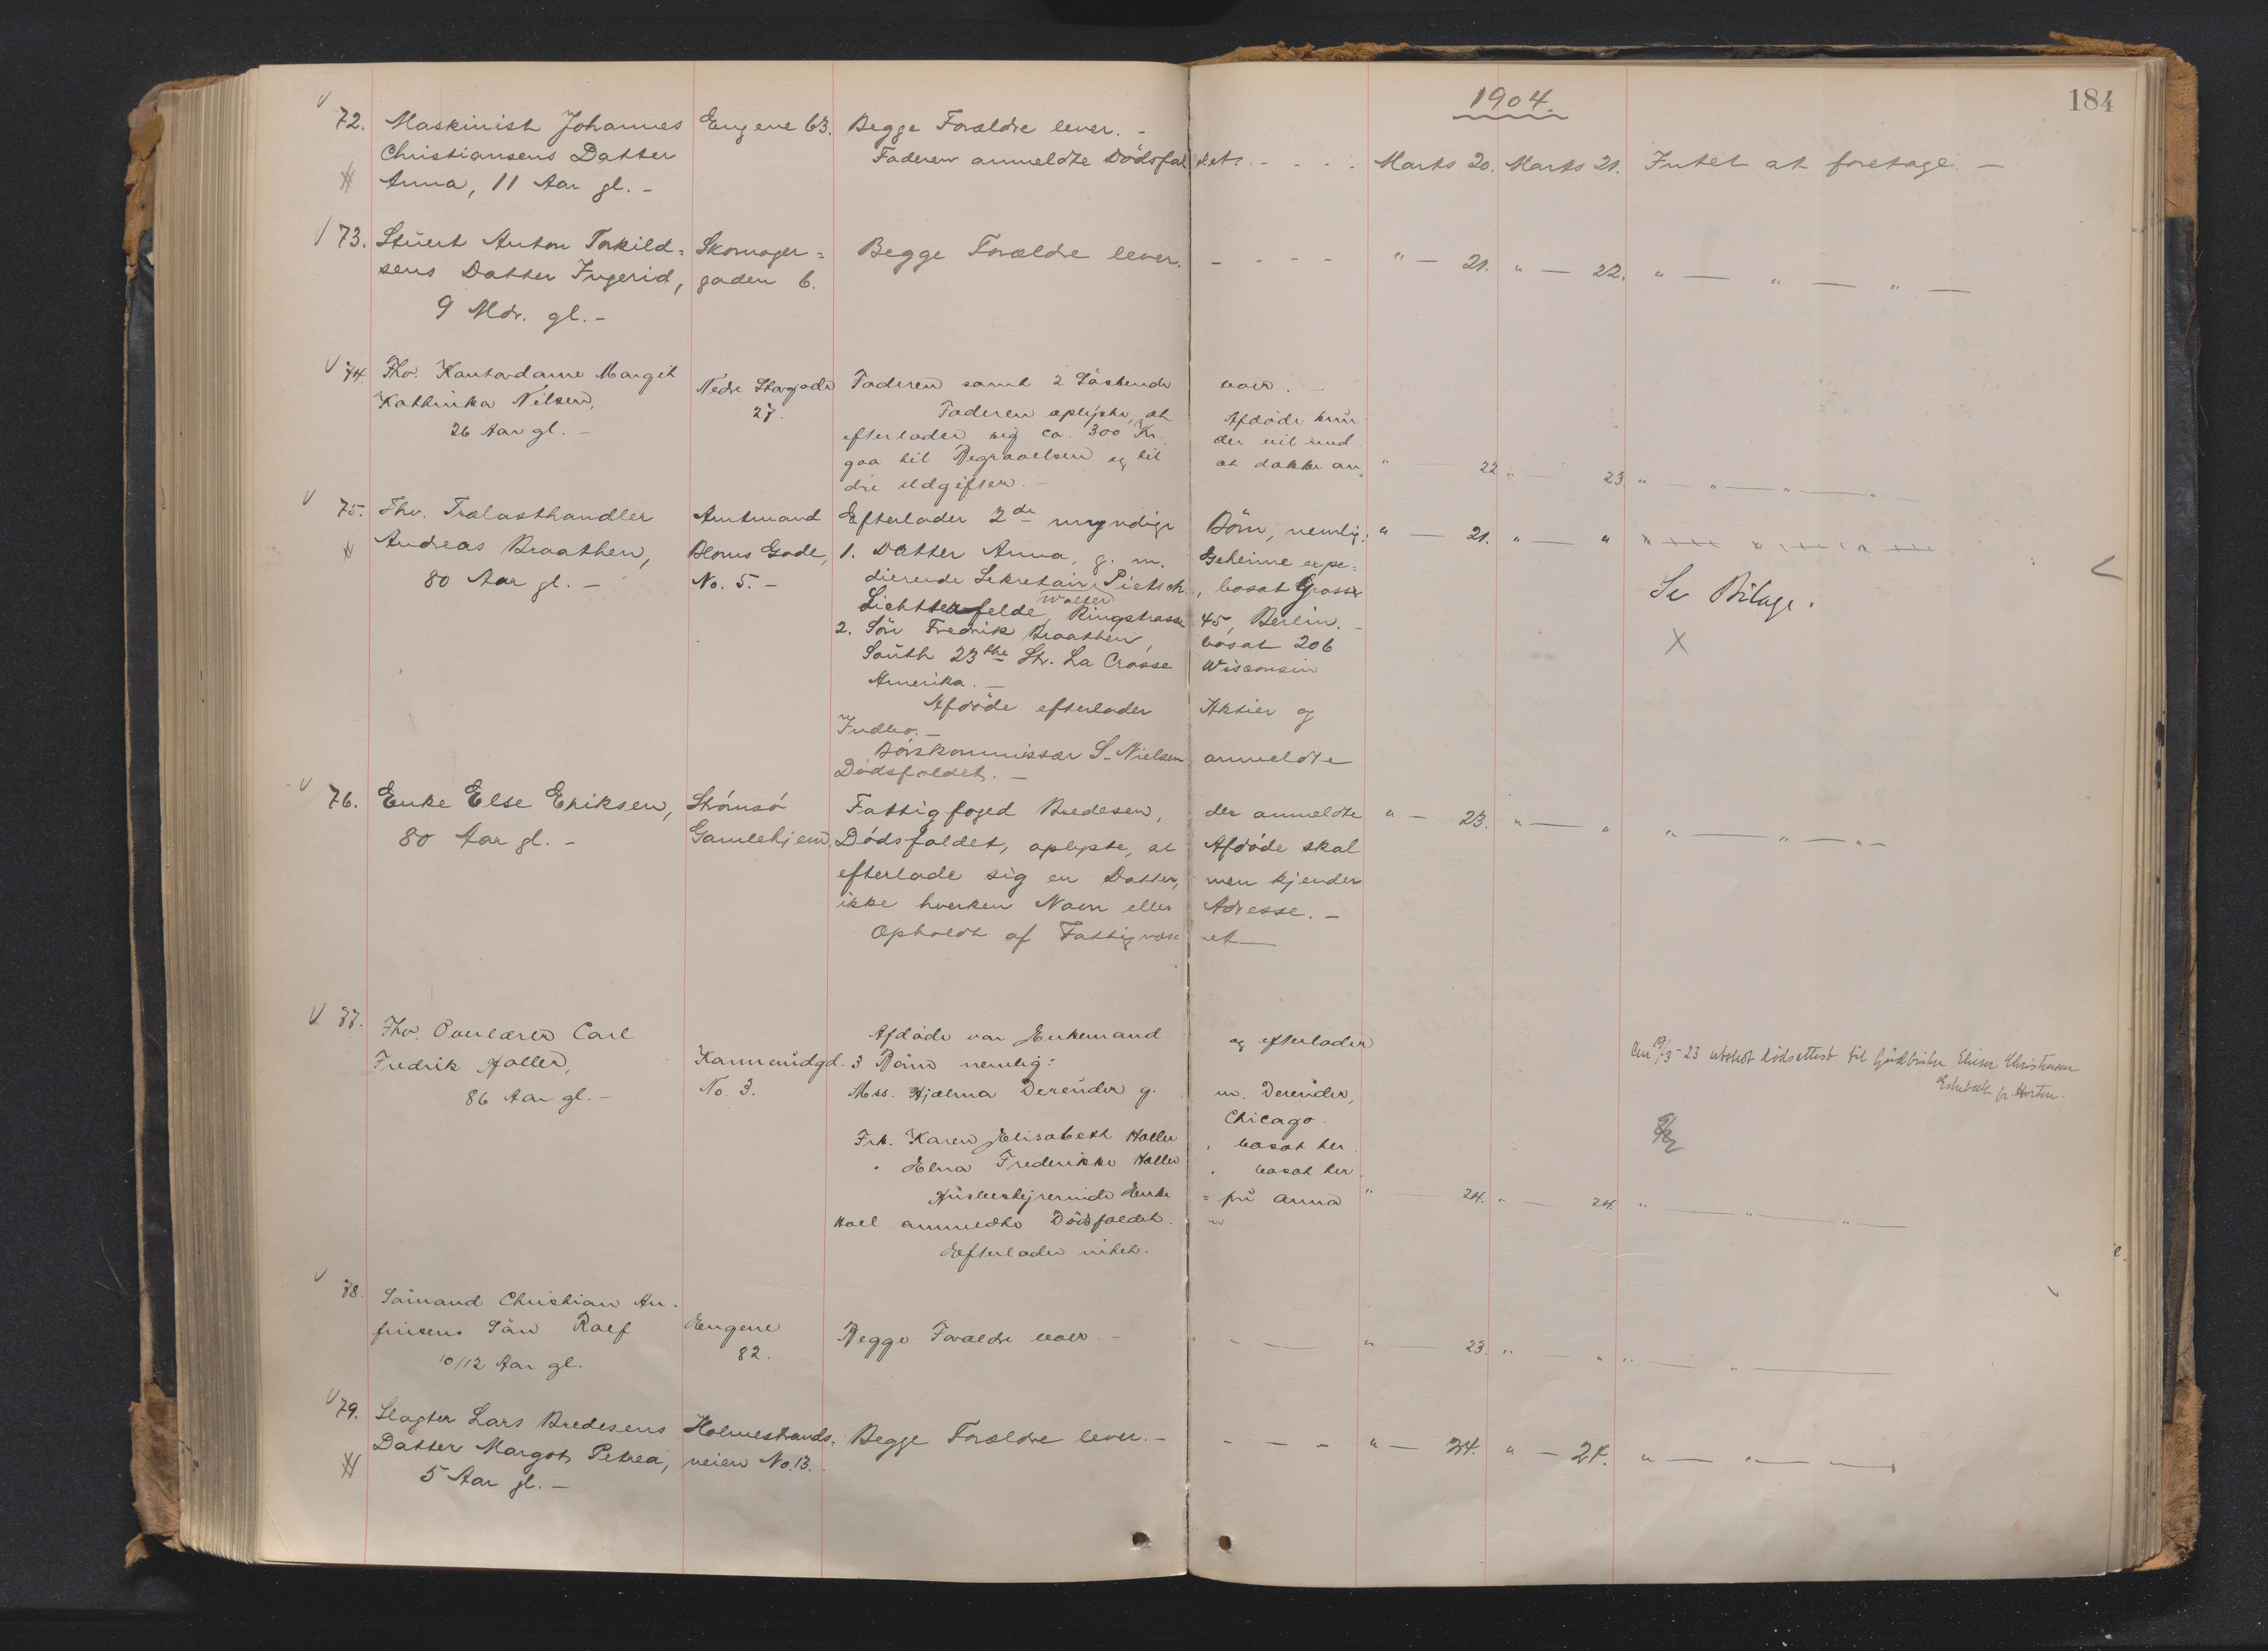 1904.
184
72. Maskinist Johannes Engene 63. Begge Forældre lever. -
Christiansens Datter Faderen anmeldte Dödsfal det. - - - - Marts 20. Marts 21. Intet at foretage. -
Anna, 11 Aar gl. -
73. Stuert Anton Torkild= Skomager= Begge Forældre lever. - - - - " - 21. " - 22. " - " - " -
sens Datter Ingerid, gaden 6.
9 Mdr. gl. -
74. Fhv. Kontordame Margit Nedre Storgade Faderen samt 2 Söskende lever. -
Kathinka Nilsen, 27. Faderen oplyste, at Afdöde kun
26 Aar gl. - efterlader sig ca. 300 Kr. der vil med
gaa til Begravelsen og til at dække an= " - 22 " - 23. " - " - " - " -
dre Udgifter. -
75. Fhv. Trælasthandler Amtmand Efterlader 2de myndige Börn, nemlig: " - 21. " - "
Andreas Braathen, Bloms Gade, 1. Datter Anna, g. m. Geheime expe=
80 Aar gl. - No. 5. - dierende Sekretair Pietsch, bosat Gross
Walter
Lichterfelde, Ringstrasse 45, Berlin. - Se Bilage.
2. Sön Fredrik Braathen, bosat 206 X
South 23the Str. La Crosse Wisconsin
Amerika. -
Afdöde efterlader Aktier og
Indbo. -
Börskommissær S. Nielsen anmeldte
Dödsfaldet. -
76. Enke Else Eriksen, Strömsö Fattigfoged Bredesen, der anmeldte " - 23. " - " " - " - " -
80 Aar gl. - Gamlehjem. Dödsfaldet, oplyste, at Afdöde skal
efterlade sig en Datter, men kjender
ikke hverken Navn eller Adresse. -
Opholdt af Fattigvæse net -
77. Fhv. Overlærer Carl Afdöde var Enkemand og efterlader
Fredrik Holler, Konnerudgd. 3 Börn nemlig: Den 19/3-23 utstedt dödsattest til
86 Aar gl. - No. 3. Mss. Hjalma Derender g. m. Derender,
Chicago.
Frk. Karen Elisabeth Holler, bosat her.
" Elna Frederikke Holler, bosat her.
Husbestyrerinde Enke= fru Anna " - 24. " - 24. " - " - " -
anmeldte Dödsfaldet.
Efterlader intet.
78. Sömand Christian An=
finsens Sön Rolf Engene Begge Forældre lever. - - - " - 23. " - " " - " -
10/12 Aar gl. 82.
79. Slagter Lars Bredesens Holmestrands= Begge Forældre lever. - - - - " - 24. " - 24. " - " - -
Datter Margot Petrea, veien No. 13.
5 Aar gl. -